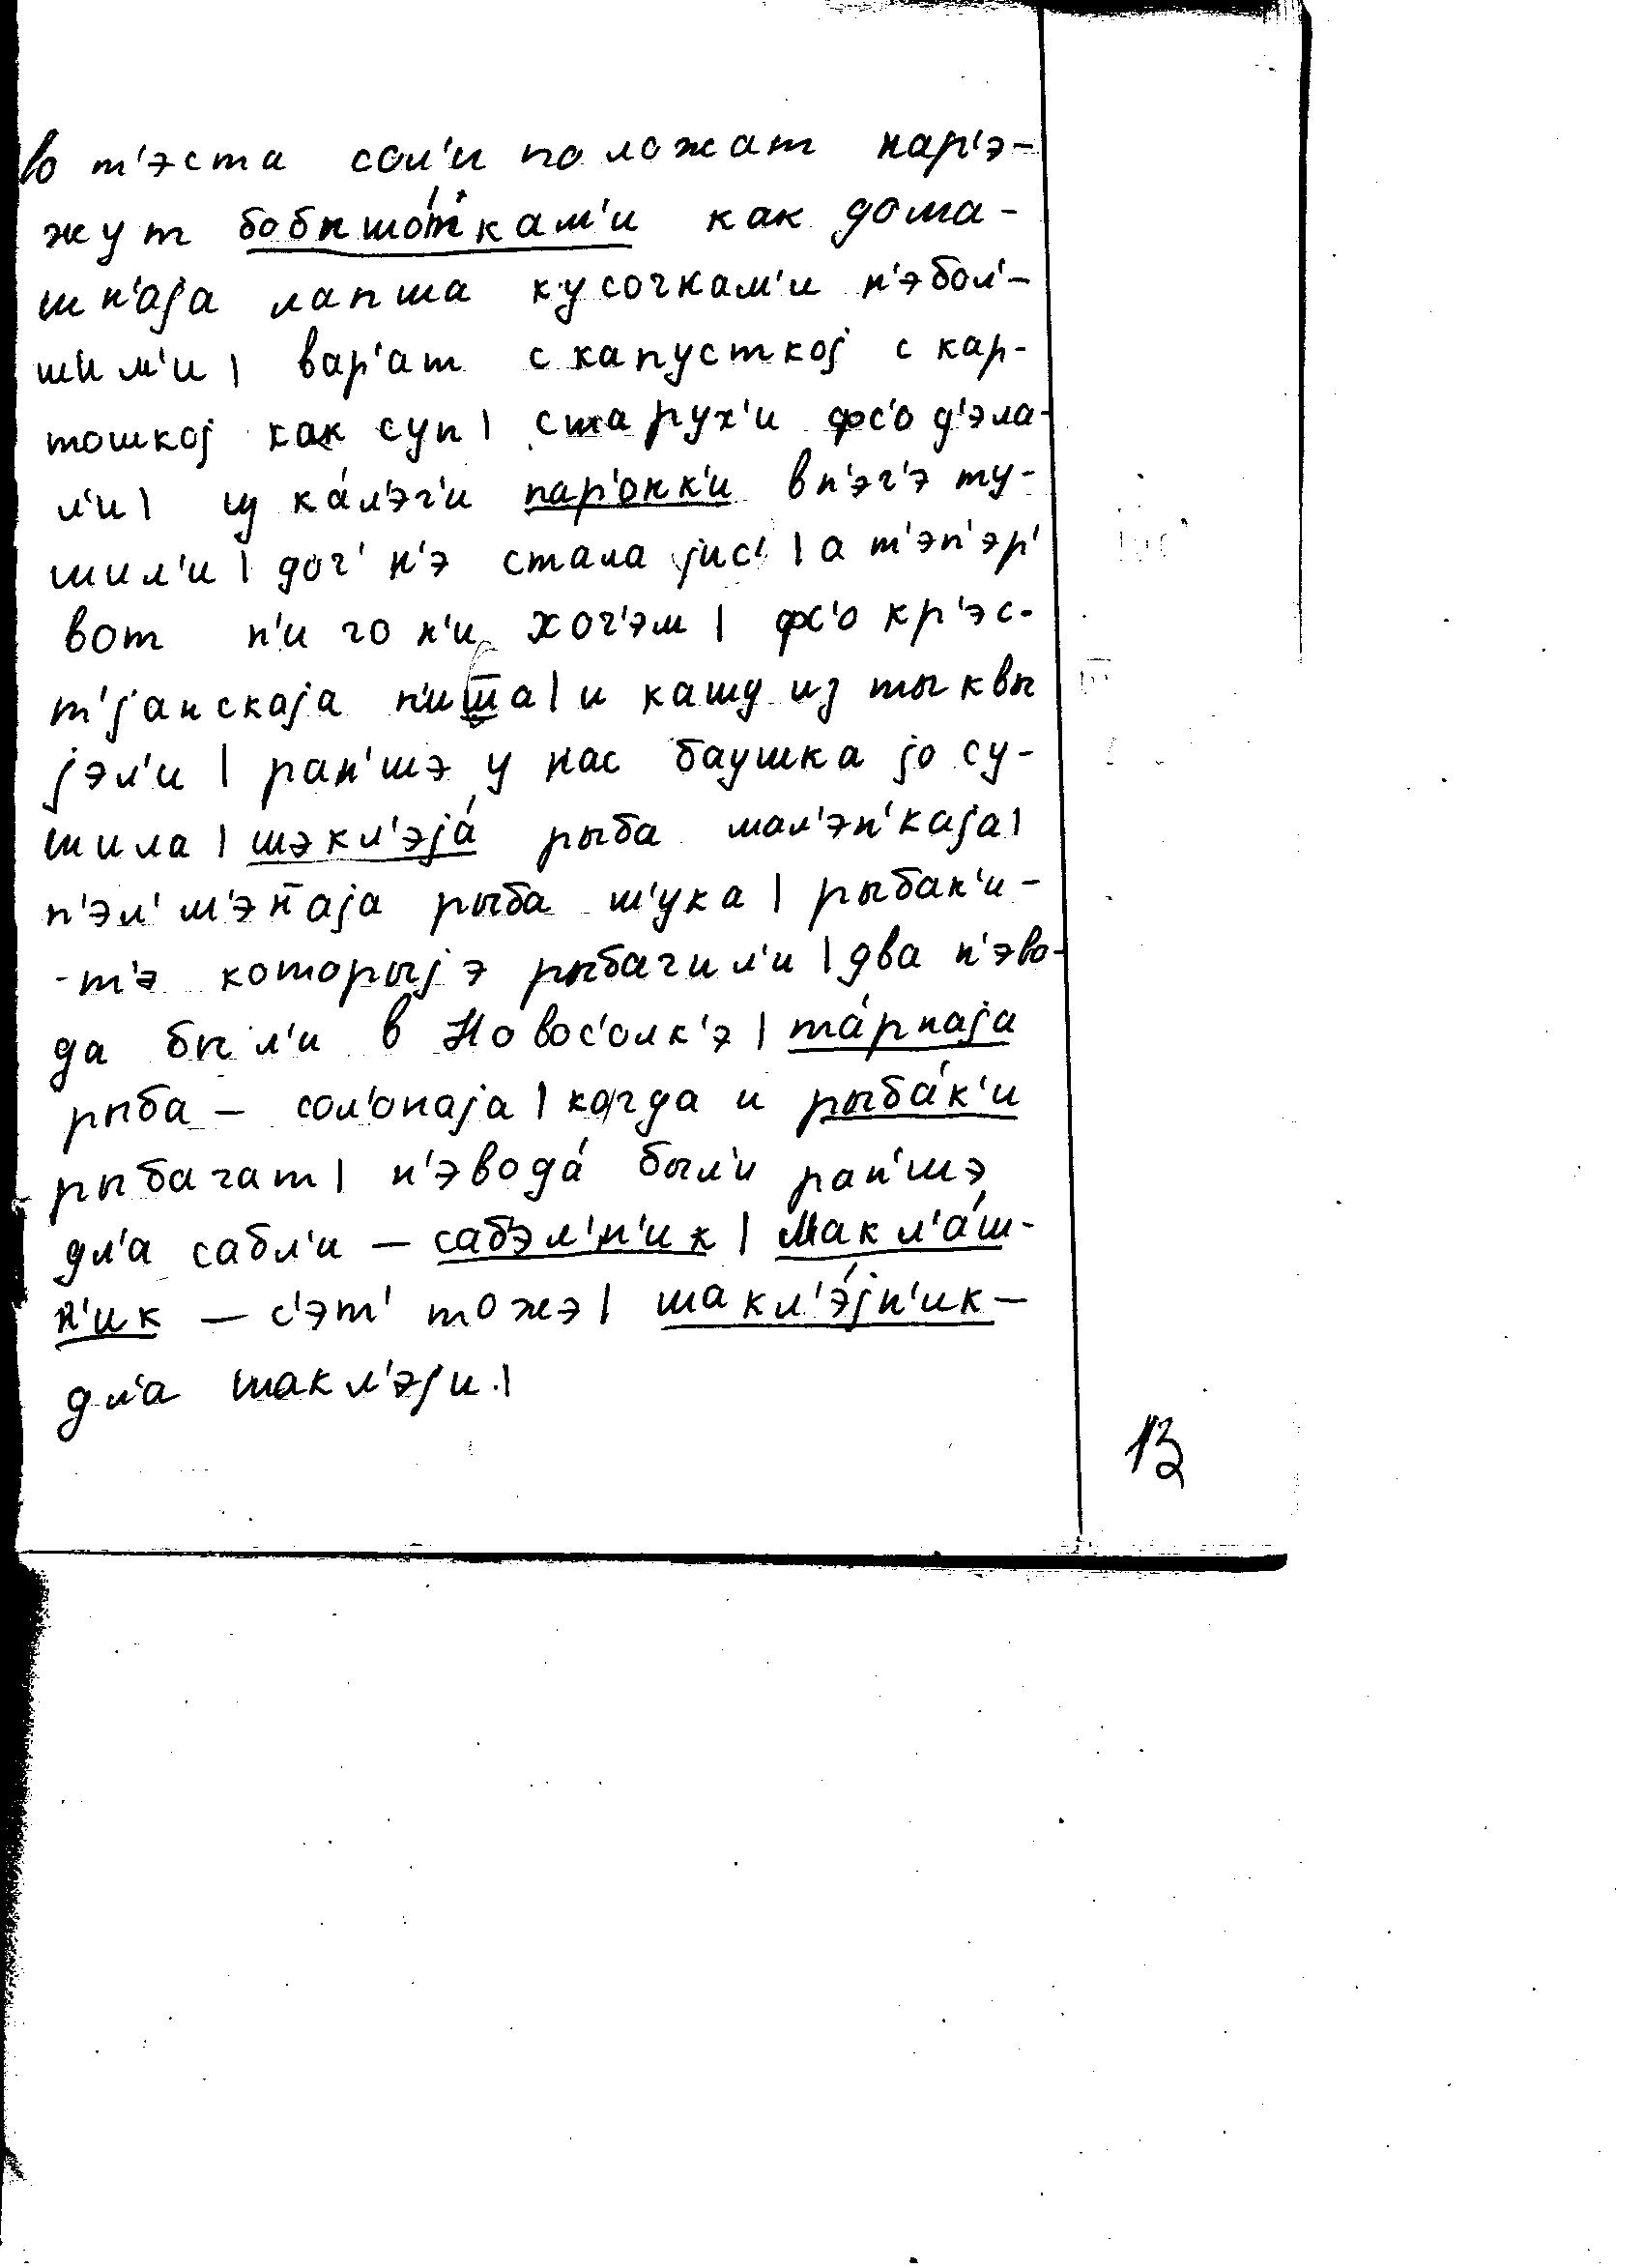 во т'эста сол'и положат нар'э-
жут бобышо́ткам'и как дома-
шн'аjа лапша кусочкам'и н'эбол'-
шим'и | вар'ат с капусткоj с кар-
тошкоj как суп | старух'и фс'о д'эла-
л'и | ка́л'эг'и пар'онк'и в п'эч'э ту-
шил'и | доч' н'э стала jис' | а т'эп'эр'
вот н'и го н'и хоч'эм | фс'о кр'эс-
т'jанскаjа п'иш̅а | и кашу из тыквы
jэл'и | ран'шэ у нас баушка jо су-
шила | шэкл'эjа́ рыба мал'эн'каjа |
п'эл'м'эн̅аjа рыба ш'ука | рыбак'и-
-т'э которыjэ рыбачил'и | два н'эво-
да был'и в Новос'олк'э | та́рнаjа
рыба – сол'онаjа | когда и рыба́к'и
рыбачат | н'эвода́ был'и ран'шэ
дл'а сабл'и – сабэл'н'ик | Макл'а́ш-
н'ик – с'эт' тожэ | шакл'э́jн'ик –
дл'а шакл'эjи. |
13